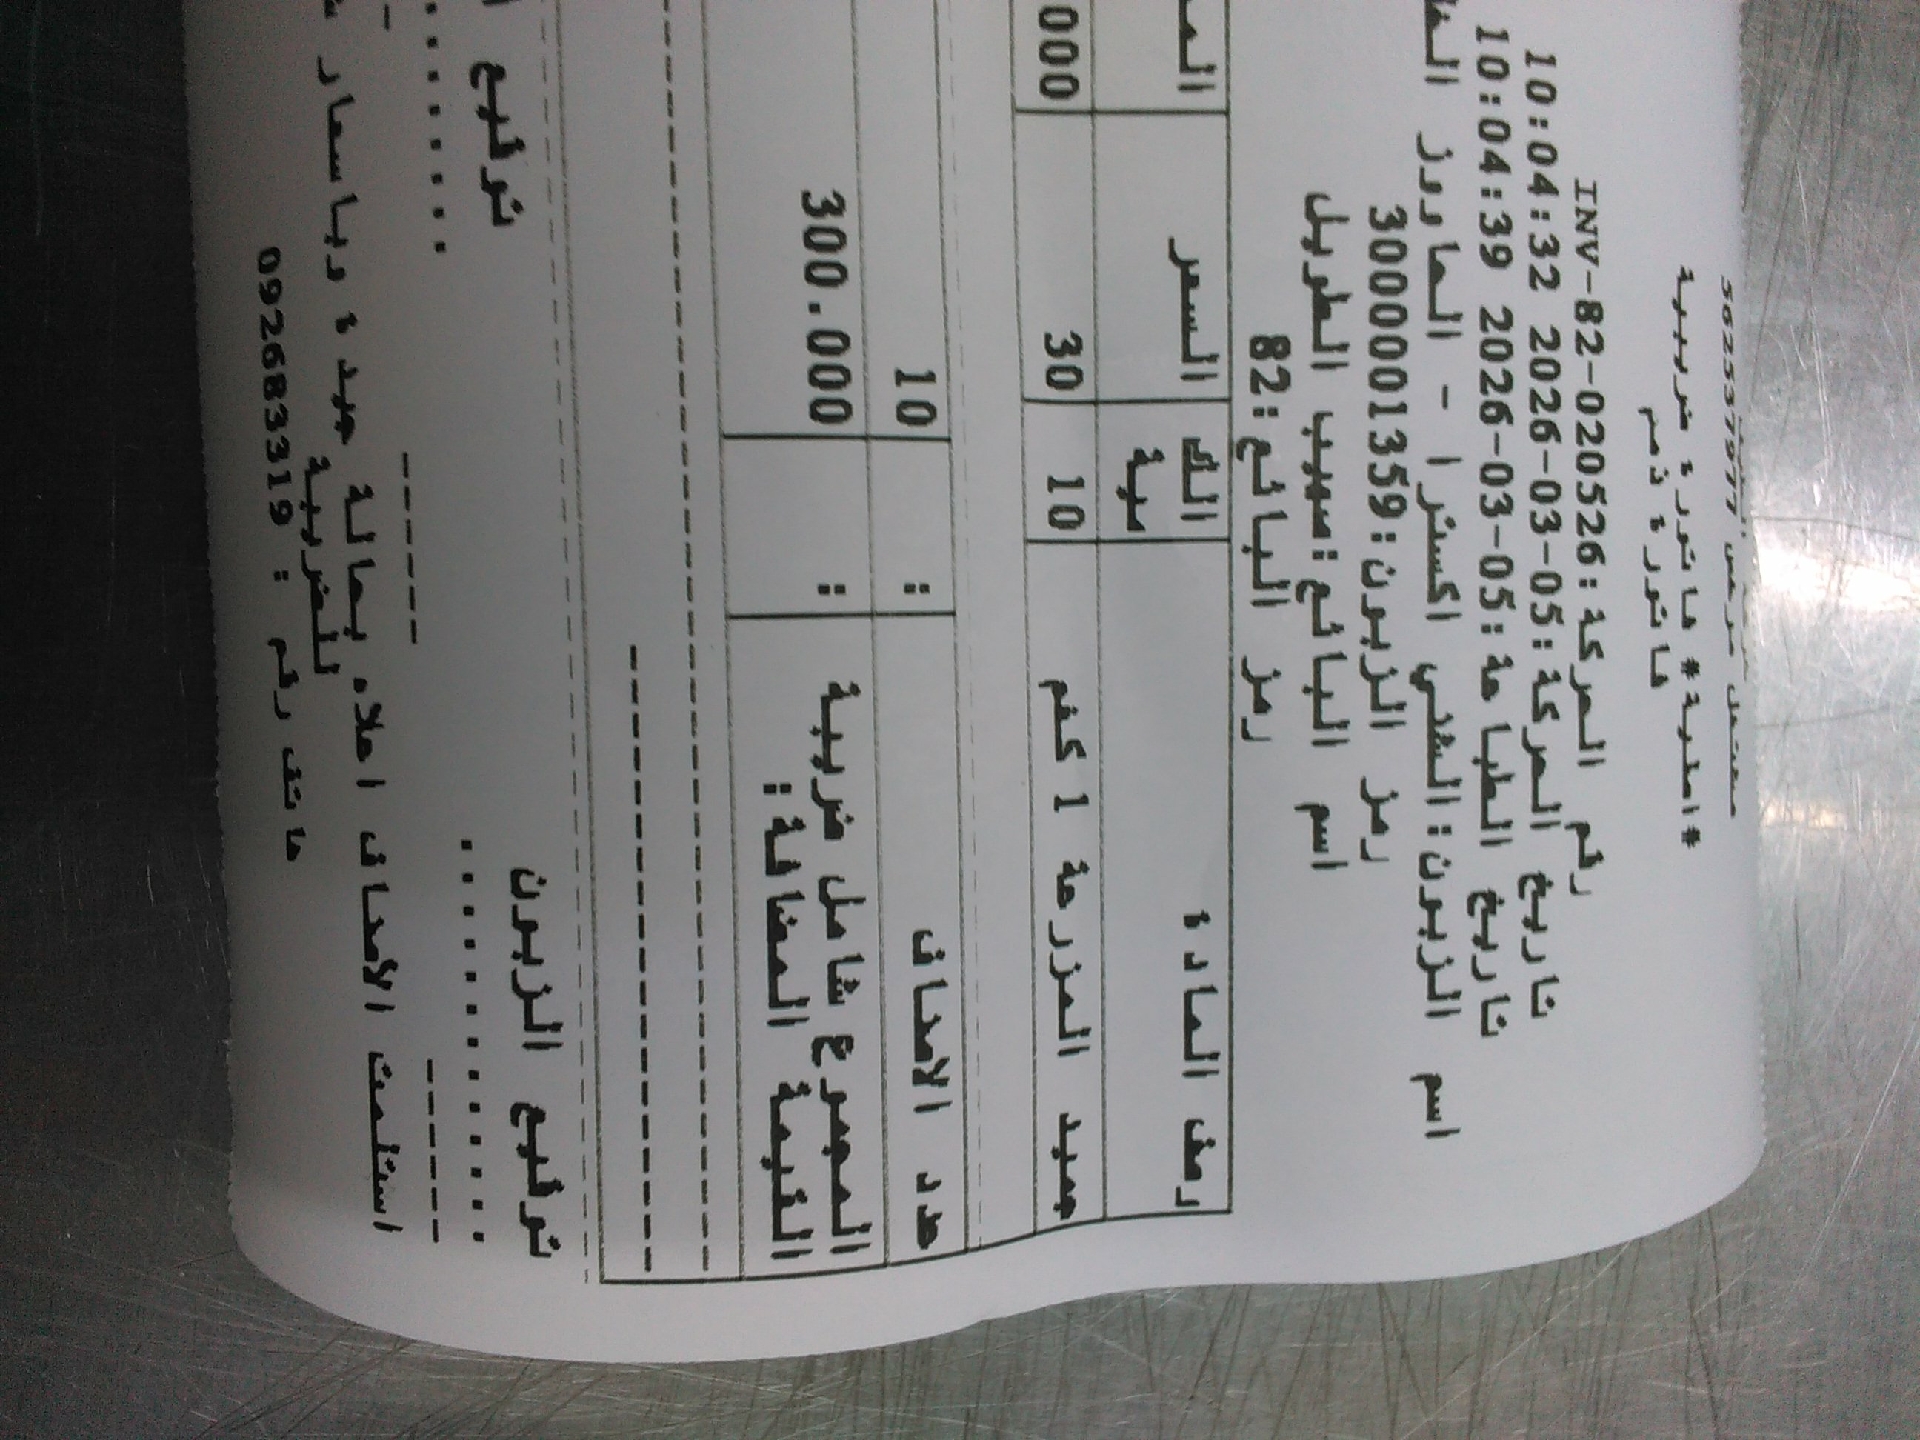 562537977
#اصلية# فاتورة ضريبية
فاتورة ذمم
رقم الحركة:INV-82-020526
تاريخ الحركة:2026-03-05 10:04:32
تاريخ الطباعة:2026-03-05 10:04:39
اسم الزبون:الشني اكسترا - الماروز
رمز الزبون:3000001359
اسم البائع:صهيب الطويل
رمز البائع:82
وصف المادة الك السعر
مية
جميد المزرعة 1 كغم 10 30 000
عدد الاصناف : 10
المجموع شامل ضريبة : 300.000
القيمة المضافة:
توقيع الزبون توقيع
.............. ..........
استلمت الأصناف اعلاه بحالة جيدة وباسعار
للضريبة
هاتف رقم : 0926833319